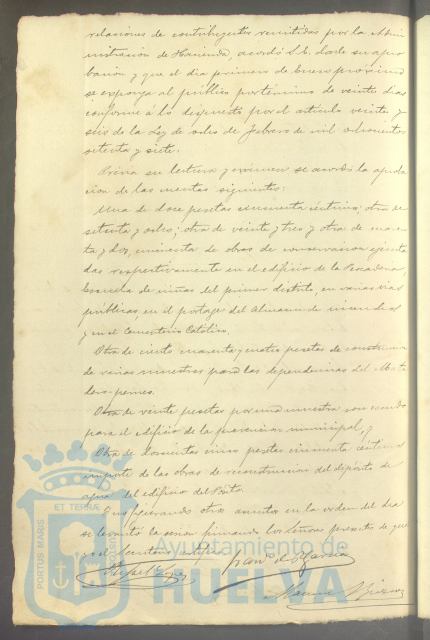 relaciones de contribuyentes remitidas por la Admi
nistracion de Hacienda, acordó S.E. darle su apro
bacion y que el dia primero de Enero próximo
se exponga al público por término de veinte dias
conforme á lo dispuesto por el artículo veinte y
seis de la Ley de ocho de Febrero de mil ochocientos
setenta y siete.
Prévia su lectura y exámen se acordó la aproba
cion de las cuentas siguientes:
Una de doce pesetas cincuenta céntimos; otra de
setenta y ocho; otra de veinte y tres y otra de cuaren
ta y dos, de obras de conservacion ejecuta
das respectivamente en el edificio de la Pescaderia,
Escuela de niñas del primer distrito, en varias vias
públicas, en el del Almacen de incendios
y en el Cementerio Católico.
Otra de ciento cuarenta y cuatro pesetas de
de varias muestras para las dependencias del Mata
dero
Otra de veinte pesetas por una muestra con escudo
para el edificio de la municipal, y
Otra de doscientas cinco pesetas cincuenta céntimos
importe de las obras de reconstruccion del depósito de
agua del edificio del
Y no figurando otros asuntos en la orden del dia
se levantó la sesion firmando los Señores presentes de que
yo el Secretario certifico
Garcia
ET TERRÆ
PORTUS MARIS
Ayuntamiento de
HUELVA